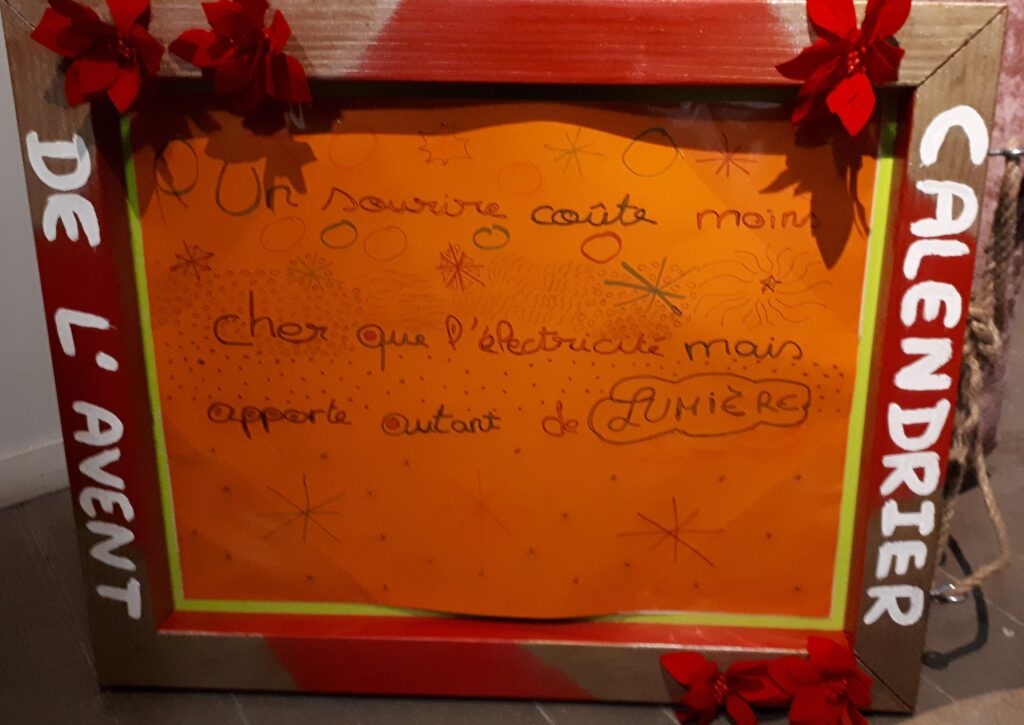 DE L'AVENT
Un sourire coûte moins
cher que l'électricité mais
apporte autant de LUMIÈRE
CALENDRIER